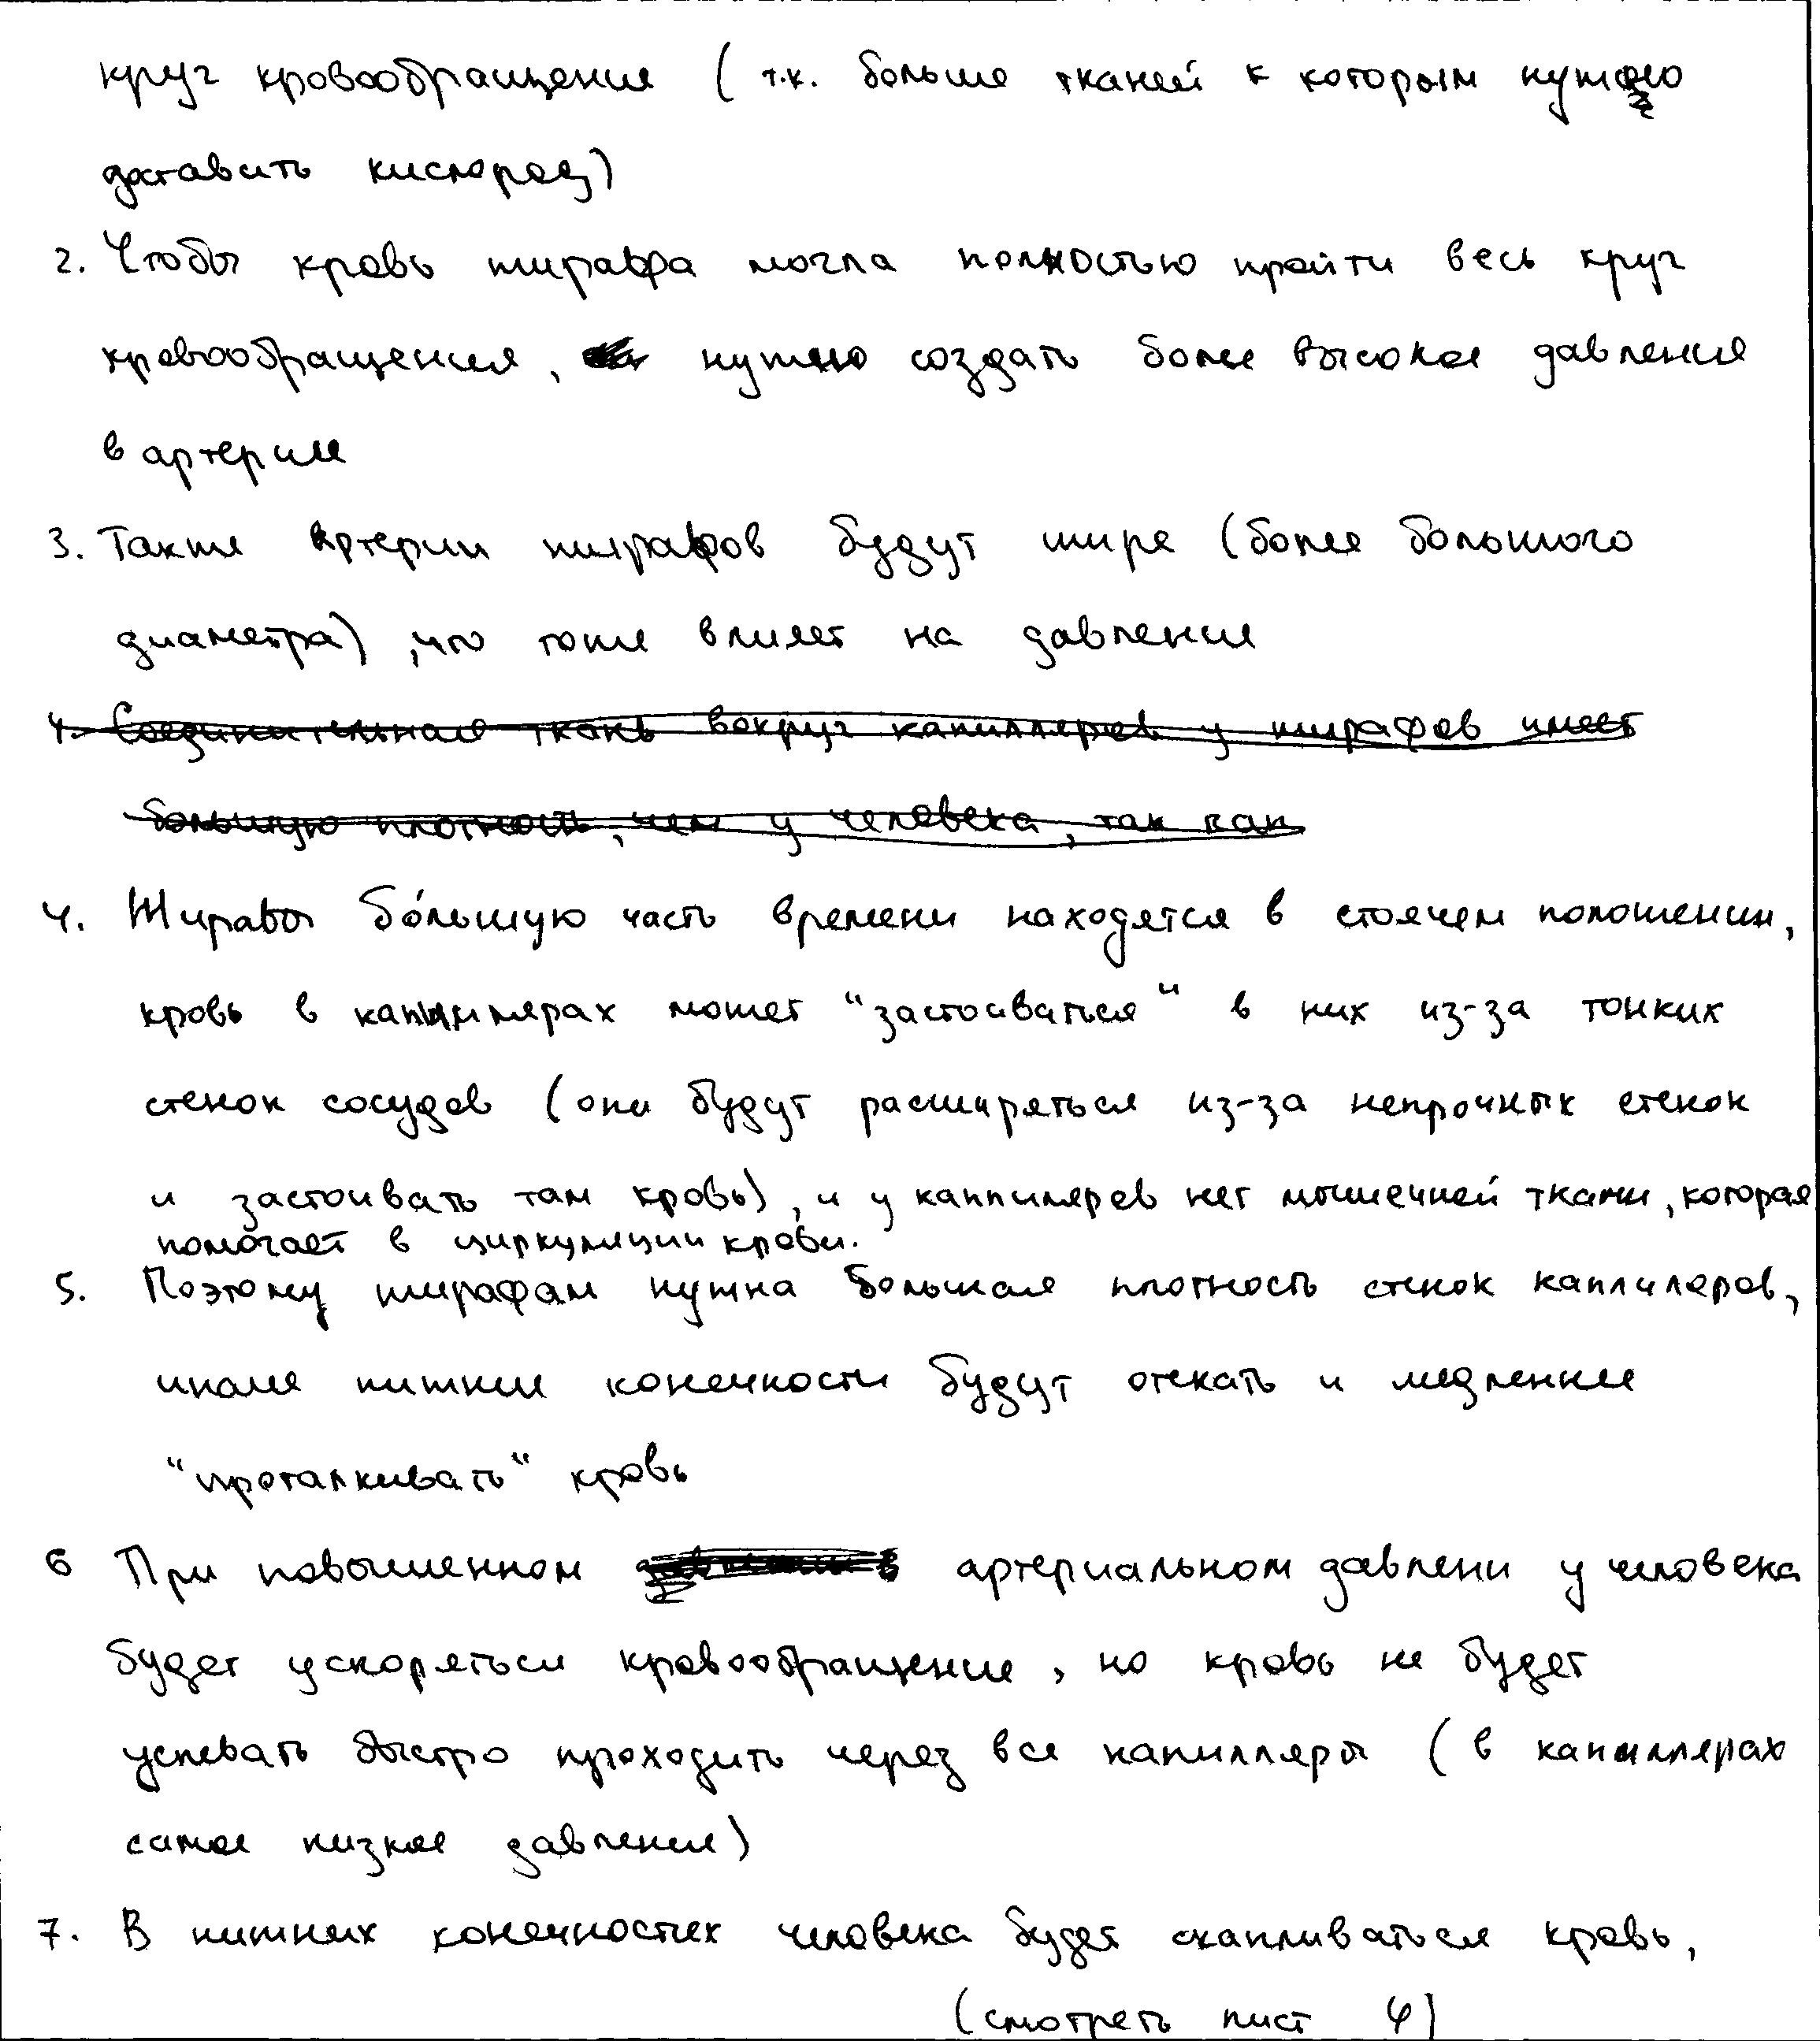 круг кровообращение ( т.к. больше тканей к которым нужно
доставить кислород)
2. Чтобы кровь жирафа могла полностью пройти весь круг
кровообращения, нужно создать более высокое давление
в артерии
3. Также артерии жирафов будут шире (более большого
диаметра), что тоже влияет на давление
4. Соединительная ткань вокруг капилляров у жирафов имеет
большую плотность, чем у человека, так как
4. Жирафы бо́льшую часть времени находятся в стоячем положении,
кровь в капиллярах может "застоиваться" в них из-за тонких
стенок сосудов (они будут расширяться из-за непрочных стенок
и застоивать там кровь), и у каппиляров нет мышечной ткани, которая
помогает в циркуляции крови.
5. Поэтому жирафам нужна большая плотность стенок капплиляров,
иначе нижние конечности будут отекать и медленнее
"проталкивать" кровь
6 При повышенном артериальном давлени у человека
будет ускоряться кровообращение, но кровь не будет
успевать быстро проходить через все капилляры ( в капиллярах
самое низкое давление)
7. В нижних конечностях человека будет скапливаться кровь,
(смотреть лист 4)